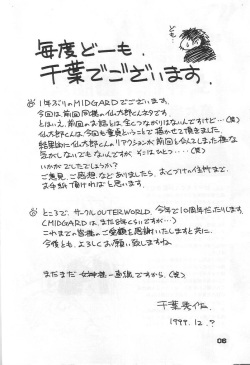 ども
毎度どーも、
千葉でございます。
1年ぶりのMIDGARDでございます。
今回は前回同様の仙太郎くんネタです
とはいえ、前回のお話とは全くつながりはないんですけど…(笑)
仙太郎くんは今回も童貞ということで描かせて頂きました。
結果的に仙太郎くんのリアクションが前回と似てしまった様な
気がしないでもないんですが、そこはそれっ……(笑)
いかがでしたでしょうか?
ご意見、ご感想などありましたら、おくづけの住所まで、
お手紙頂ければと思います。
ところで、サークルOUTERWORLD、今年で10周年だったりします
(MIDGARDはまだ8年くらいですが…)
これまでの皆様のご愛顧を感謝いたしますと共に、
今後とも、よろしくお願い致しますね。
まだまだ女神様一直線ですから。(笑)
千葉秀作
1999.12.?
06